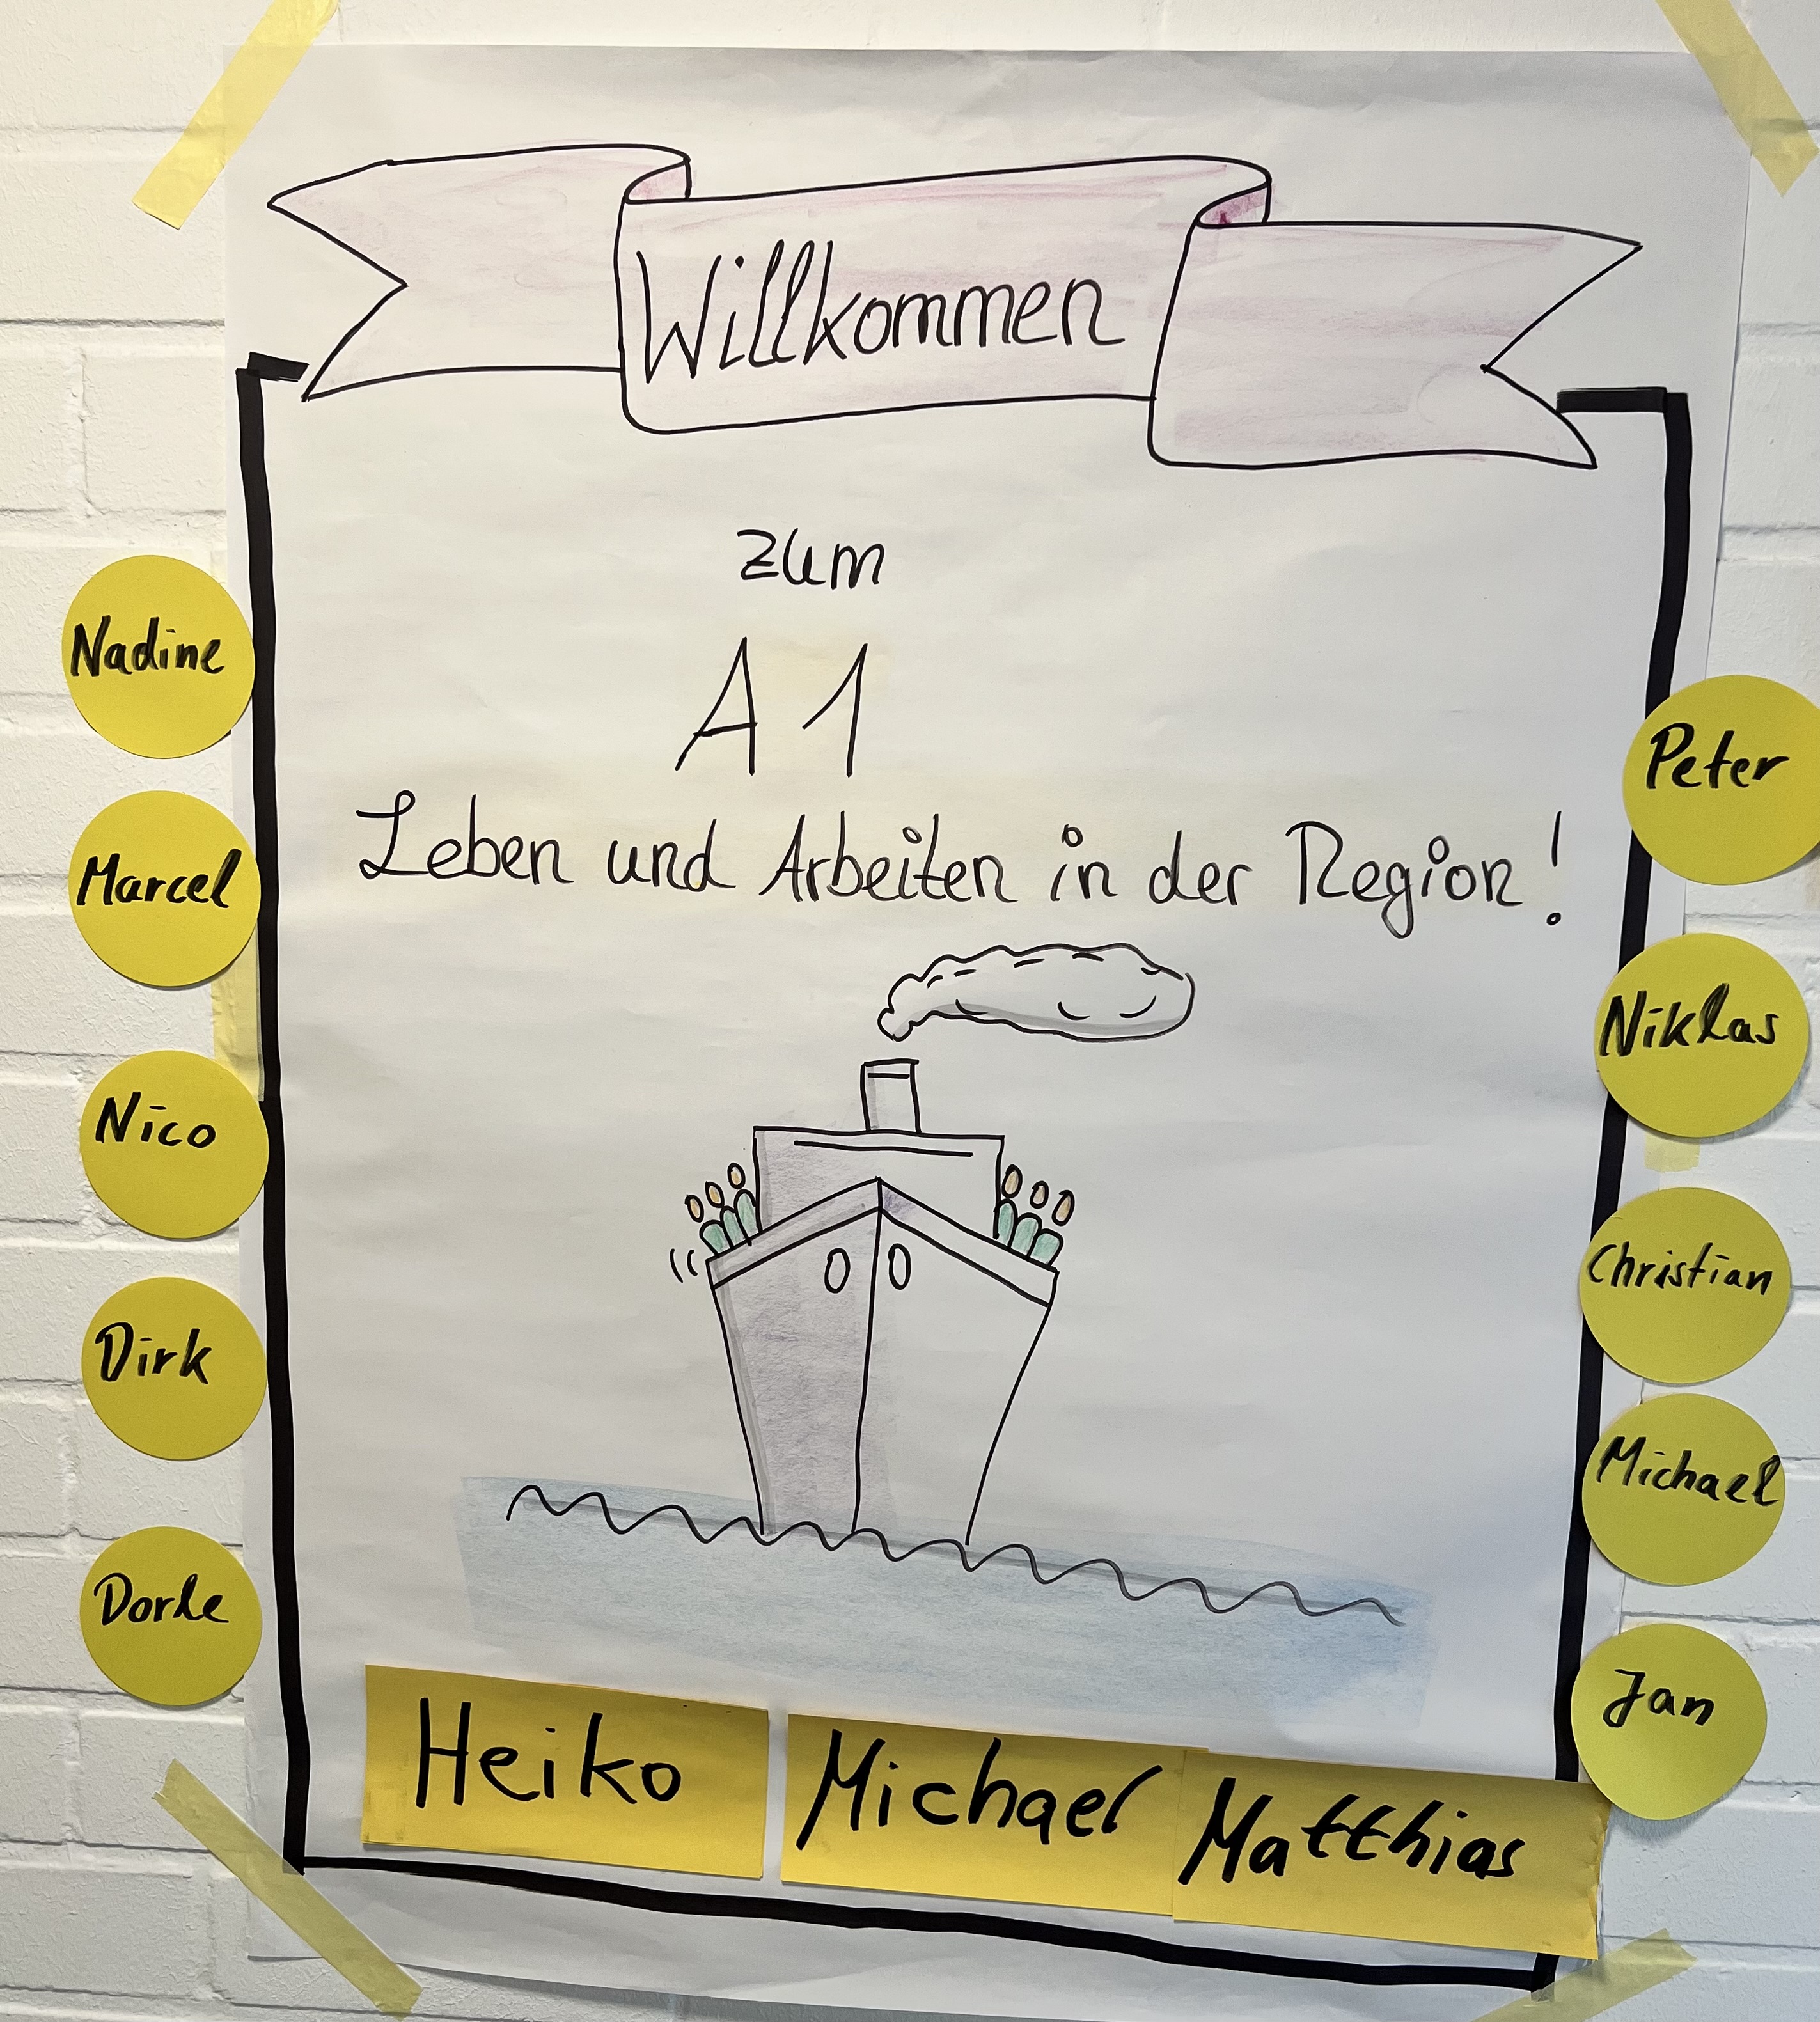 Willkommen
zum
A1
Leben und Arbeiten in der Region!
Nadine
Marcel
Nico
Dirk
Dorle
Peter
Niklas
Christian
Michael
Jan
Heiko
Michael
Matthias